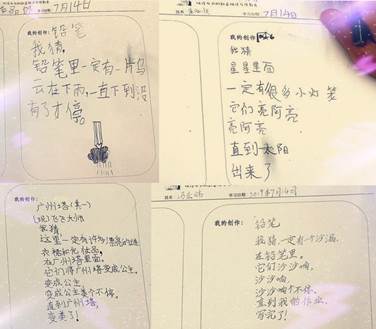 7月14日
我的创作:铅笔
我猜,
铅笔里一定有一片乌
云在下雨,一直下到没
有了才停。
7月14日
我的创作:
我猜
星星里面
一定有很多小灯笼
它们亮阿亮
亮阿亮
直到太阳
出来了
我的创作:
广州塔(其一)
我猜
这里一定有许多漂亮的
在广州塔里面。
它们得广州塔变成公主,
变成公主
变成公主美个不停。
直到广州塔,
变美了!
2019年7月14日
我的创作:
铅笔
我猜,一定有个沙漏,
在铅笔里。
它们沙沙响,
沙沙响,
沙沙响个不停,
直到我的作业,
写完了!